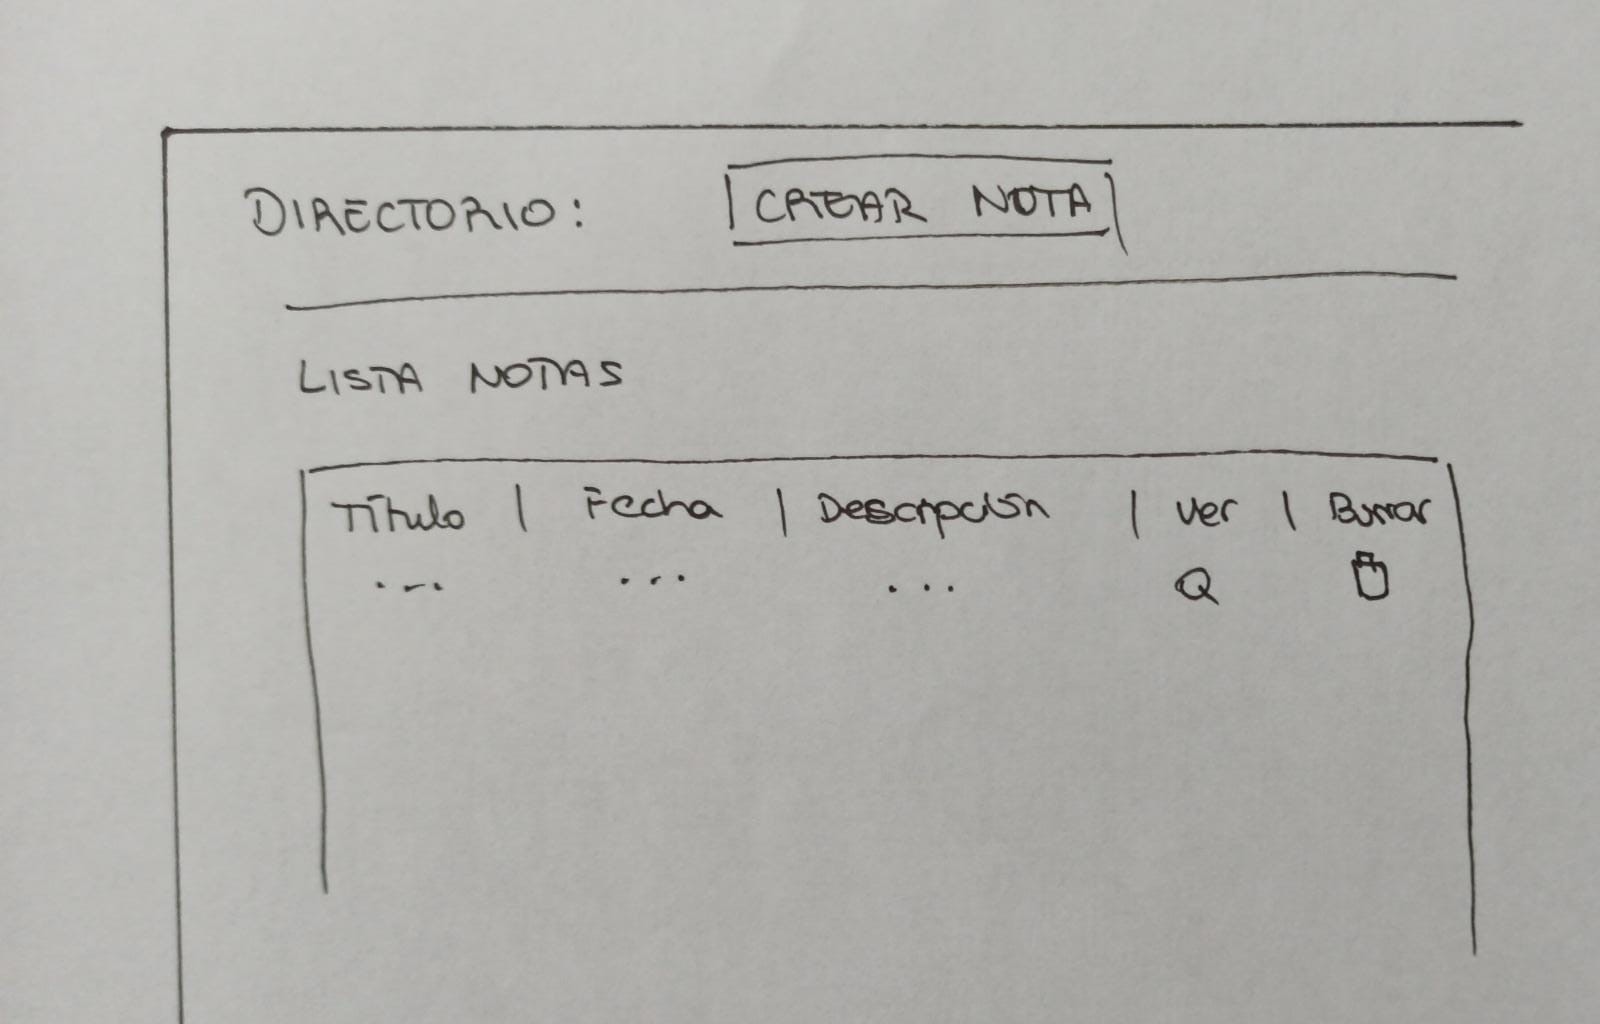 DIRECTORIO: CREAR NOTA
LISTA NOTAS
Título | Fecha | Descripción | Ver | Borrar
... ... ...